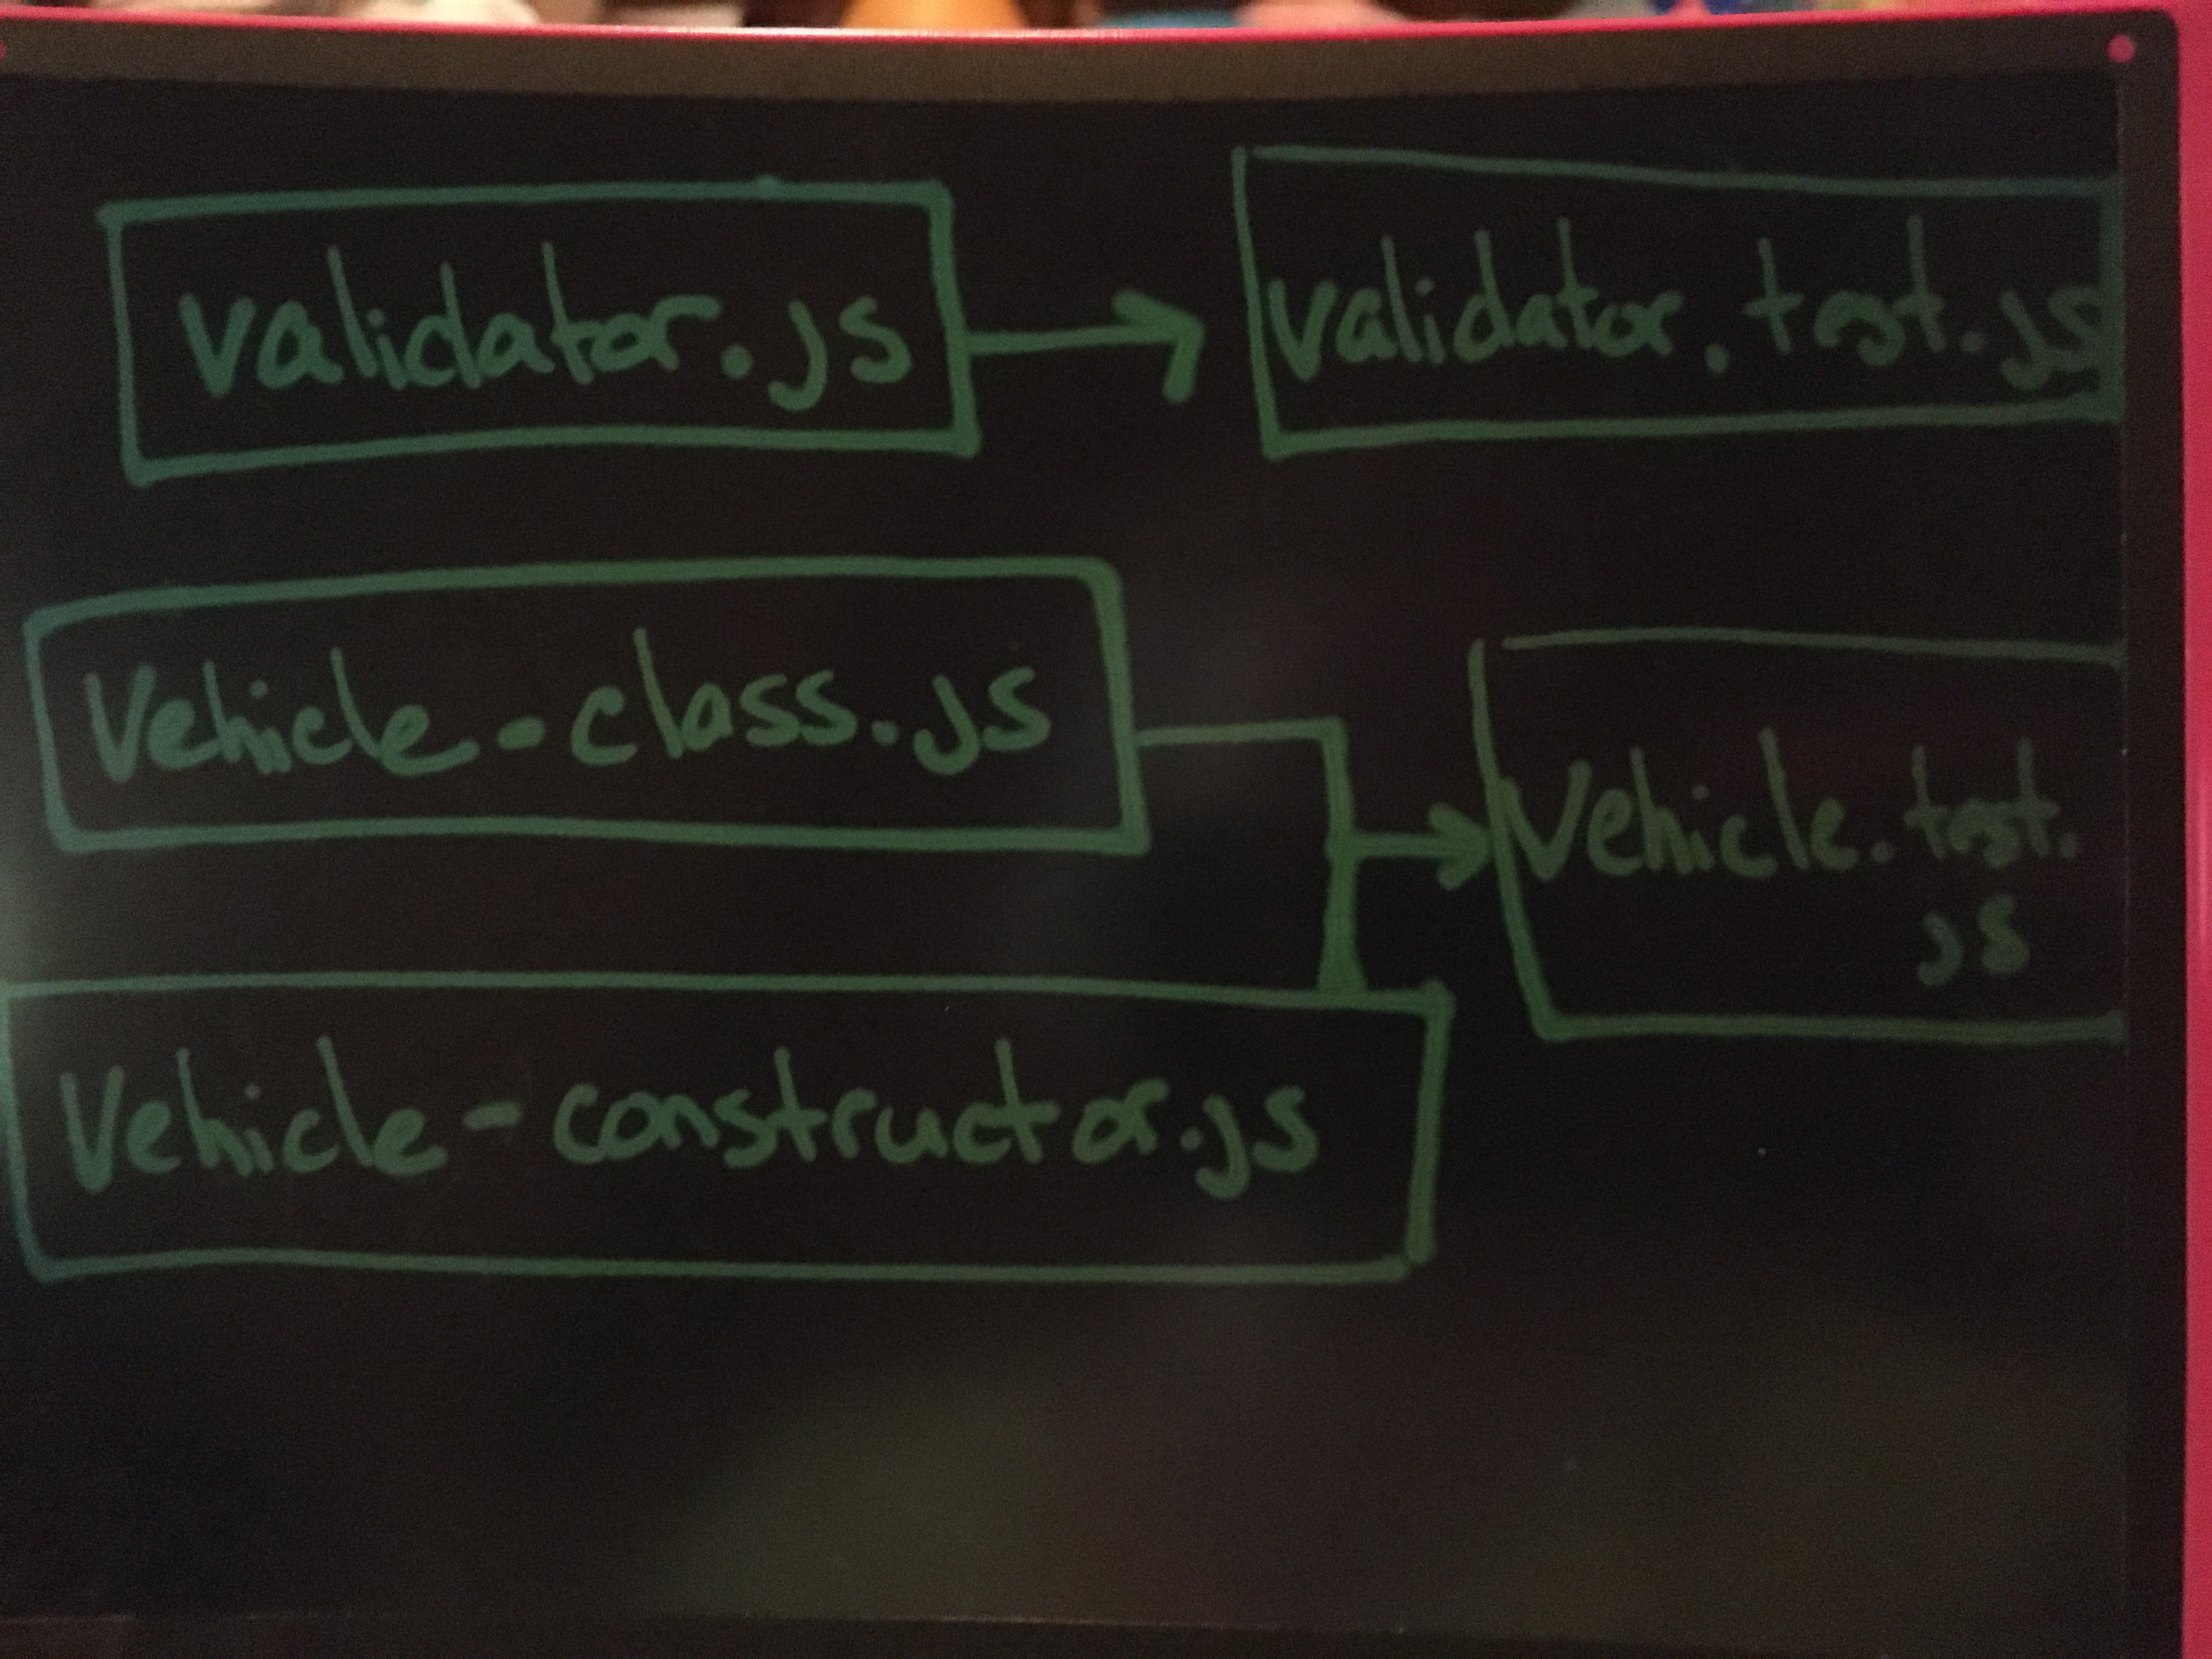 validator.js
validator.test.js
Vehicle-class.js
Vehicle.test.
js
Vehicle-constructor.js